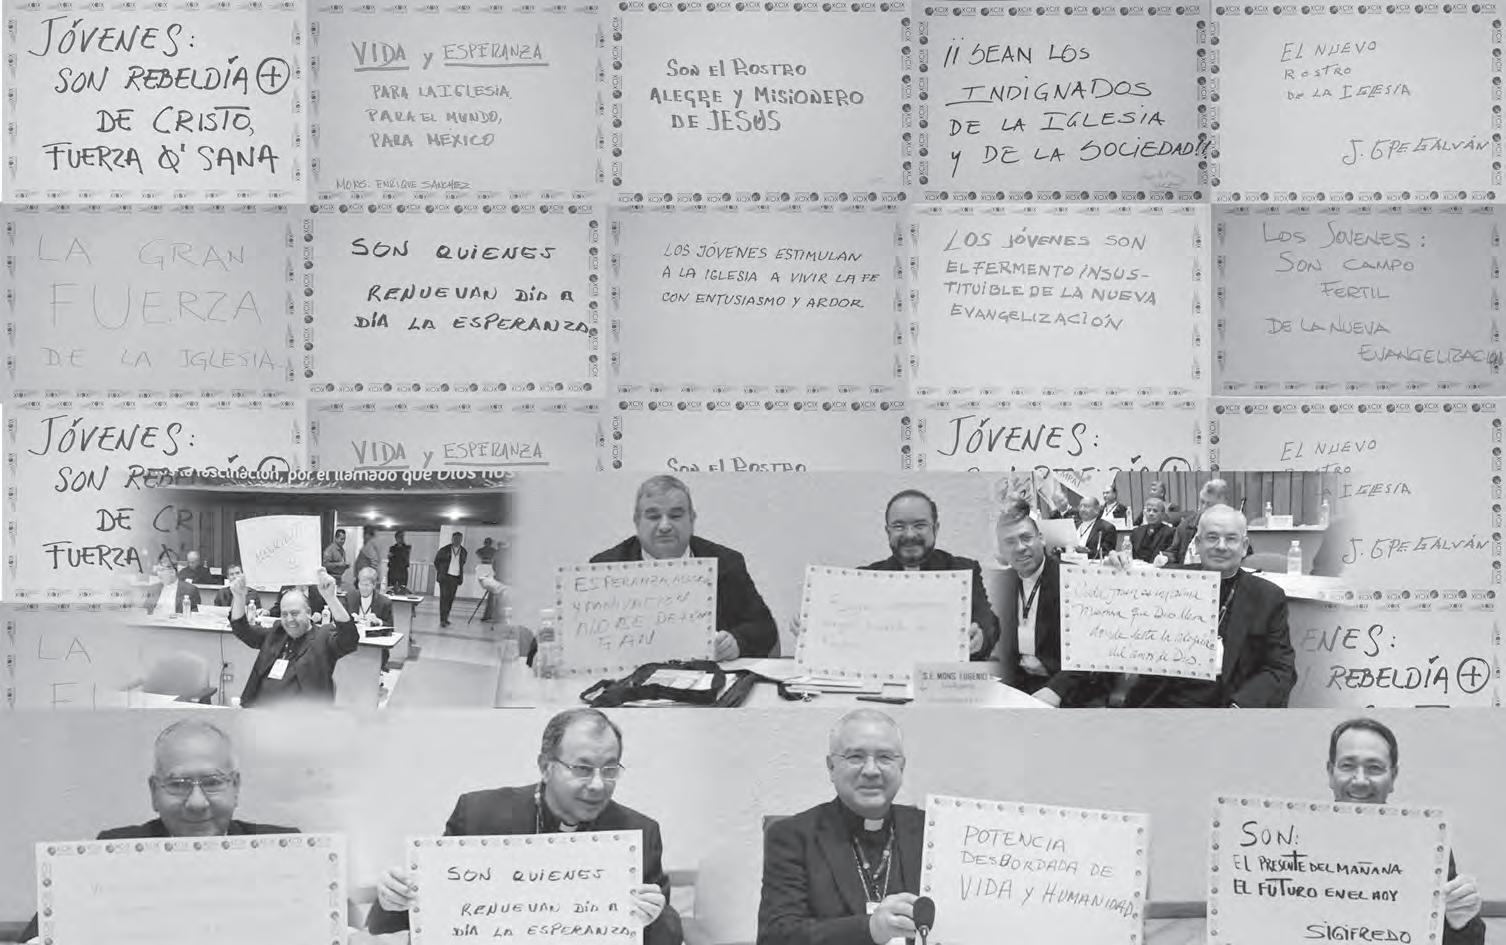 JÓVENES:
SON REBELDÍA
DE CRISTO,
FUERZA Q' SANA
VIDA y ESPERANZA
PARA LA IGLESIA
PARA EL MUNDO,
PARA MÉXICO
MONS. ENRIQUE SANCHEZ
SON El ROSTRO
ALEGRE Y MISIONERO
DE JESÚS
¡¡SEAN LOS
INDIGNADOS
DE LA IGLESIA
y DE LA SOCIEDAD!!
EL NUEVO
ROSTRO
DE LA IGLESIA
J. GPE GALVÁN
LA GRAN
FUERZA
DE LA IGLESIA.
SON QUIENES
RENUEVAN DÍA A
DÍA LA ESPERANZA.
LOS JÓVENES ESTIMULAN
A LA IGLESIA A VIVIR LA FE
CON ENTUSIASMO Y ARDOR.
LOS JÓVENES SON
EL FERMENTO INSUS-
TITUIBLE DE LA NUEVA
EVANGELIZACIÓN
LOS JOVENES:
SON CAMPO
FERTIL
DE LA NUEVA
EVANGELIZACION
JÓVENES:
SON
DE CR
FUERZA Q'
VIDA y ESPERANZA
SON El ROSTRO
JÓVENES:
EL NUEVO
ROSTRO
IGLESIA
J. GPE GALVÁN
fascinación, por el llamado que Dios nos
LA
ESPERANZA
GAN
S.E. MONS. EUGENIO
que Dios
del amor de Dios.
ENES:
REBELDÍA
SON QUIENES
RENUEVAN DÍA A
DÍA LA ESPERANZA.
POTENCIA
DESBORDADA DE
VIDA y HUMANIDAD.
SON:
EL PRESENTE DEL MAÑANA
EL FUTURO EN EL HOY
SIGIFREDO